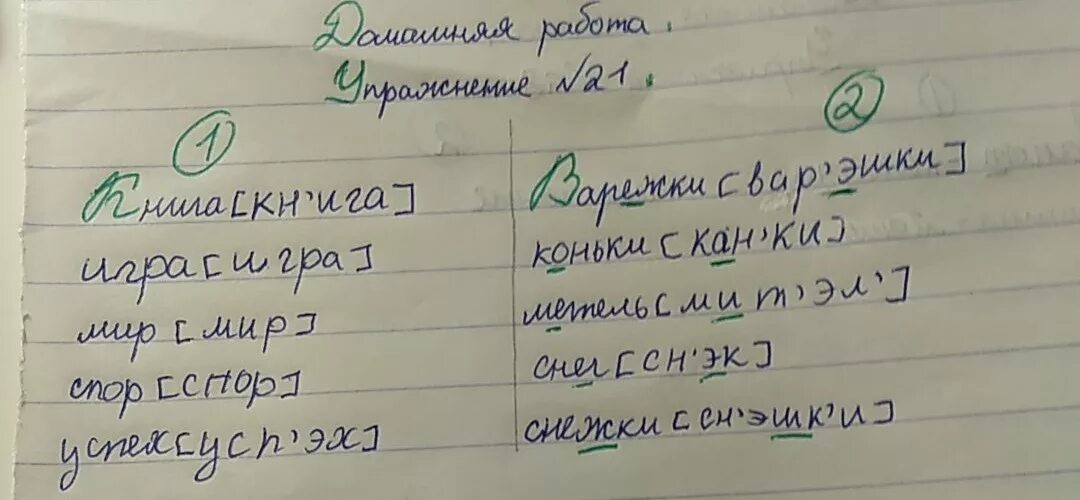 Домашняя работа.
Упражнение №21.
1
Книга [кн'ига]
игра [игра]
мир [мир]
спор [спор]
успех [усп'эх]
2
Варежки [вар'эшки]
коньки [кан'ки]
метель [мит'эл']
снег [сн'эк]
снежки [сн'эшк'и]